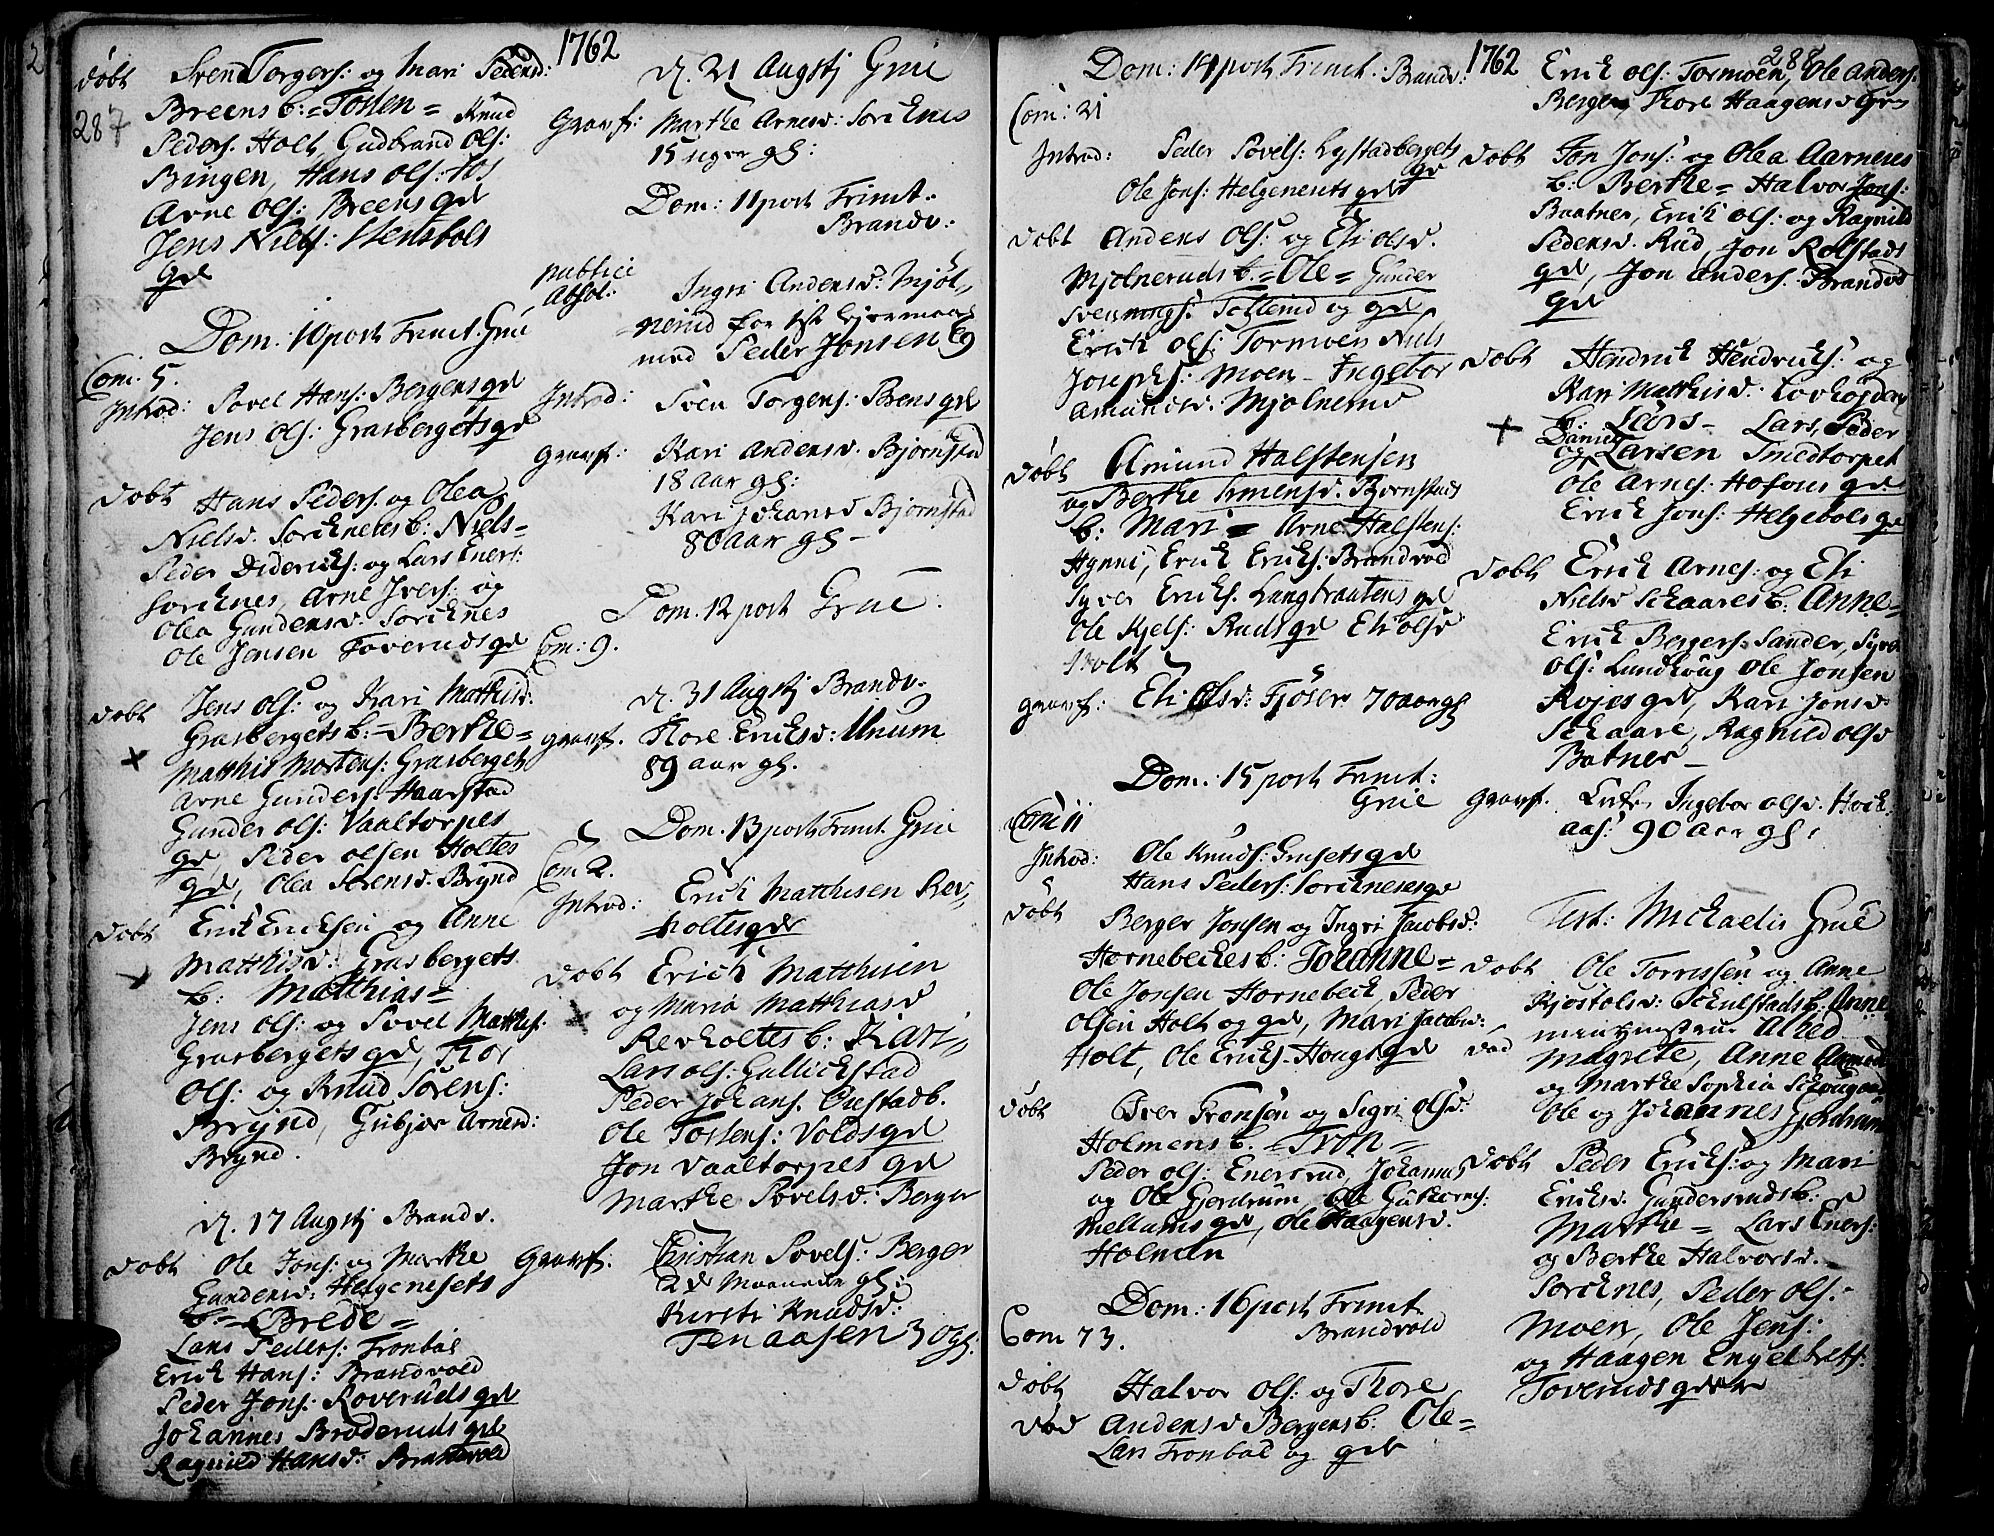 287
1762
Døbt Svend Torgers: og Mari Pedersd:
Breens b: = Tosten = Knud
Peders. Holt, Gudbrand Ols:
Bingen, Hans Ols:
Arne Ols: Breens gd
Jens Niels:
gd
Dom. 10 post Trinit. Grue
Com. 5.
Introd: Povel Hans: Bergens gd
Jens Ols: Grasbergets gd
Døbt Hans Peders. og Olea
Nielsd. Soricknes b: Niels =
Peder Dideriks: og Lars Eners:
Soricknes, Arne Ivers: og
Olea Gundersd. Soricknes
Ole Jensen Toveruds gd
Døbt Jens Ols: og Kari Matthisd:
Grasbergets b: = Berthe =
Matthis Mortens: Grasberget
Arne Gunders: Haarstad
Gunder Ols: Vaaltorpes
gd, Peder Olsen Holtes
gd, Olea Sørensd. Brynd
Døbt Erik Ericksen og Anne
Matthisd: Grasbergets
b: Matthias =
Jens Ols: og Povel Matthis:
Grasbergets gd, Thor
Ols: og Knud Sørens:
Brÿnd, Gubjør Arnesd:
Brynd.
d. 17 Augstj Brandv.
Døbt Ole Jons: og Marthe
Gundersd: Helgenesets
b = Brede =
Lars Peders: Tronbøl
Erick Hans: Brandvold
Peder Jons: Roveruds gd
Johannes Broderuds gd
Ragnild Hansd: Brandvold
d. 21 Augstj Grue
Gravf: Marthe Arnesd: Soricknes
15 uger gl:
Dom: 11 post Trinit:
Brandv:
publice
Absol: Ingri Andersd: Mjøl=
nerud for Leiermaal
med Peder Jonsen
Introd: Sven Torgers: Brens gd
Gravf: Kari Andersd. Bjørnstad
18 Aar gl:
Kari Johansd Bjørnstad
80 aar gl -
Dom. 12 post Grue.
Com: 9.
d. 31 Augstj Brandv.
gravf. Thore Ericksd: Unum
89 aar gl.
Dom. 13 post Trinit. Grue
Com 2.
Introd: Erick Matthisen Rev=
holtes gd
Døbt Erick Matthisen
og Maria Matthiasd
Revholtes b: Kari =
Lars Ols: Gullickstad
Peder Johans.
Ole Tostens: Volds gd
Jon Vaaltorpes gd
Marthe Povelsd: Berger
Gravf. Christian Povels: Berger
2 Maaneder gl:
Kirsti Knudsd:
Tenaasen 30 gl:
288
1762
Dom: 14 post Trinit. Brandv:
Com: 21
Introd: Peder Povels: Lystadbergets
gd
Ole Jons: Helgenesets gd
Døbt Anders Ols: og Eli Olsd.
Mjølneruds b = Ole = Gunder
Svennungs: Tøllerud og gd
Erick Ols: Tormoen Niels
Josephs: Moen - Ingebor
Amundsd. Mjølnerud
Døbt Amund Halstensen
og Berthe Simensd. Bjørnstads
b: Mari = Arne Halstens:
Hynni, Erick Ericks: Brandvold
Syver Ericks. Langbraatens gd
Ole Kjels: Ruds gd Eli Olsd
Holt
gravf: Eli Olsd: Fjøser 70 aar gl
Dom: 15 post Trinit:
Grue
Com 11
Introd: Ole Knuds: Grusets gd
Hans Peders: Soricknes gd
Døbt Berger Jonsen og Ingri Jacobsd:
Hornebeckes b: Johanne =
Ole Jonsen Hornebeck, Peder
Olsen Holt og gd, Mari Jacobsd:
Holt, Ole Ericks. Hougs gd
Døbt Iver Tronsøn og Sigri Olsd:
Holmens b. = Tron =
Peder Ols: Enersrud, Johannes
og Ole Gjerdrum, Ole Guttorms:
Mellums gd, Ole Haagensd.
Holmen
Dom: 16 post Trinit.
Brandvold
Com 73.
Døbt Halvor Ols: og Thore
Død Andersd Bergers b: Ole =
Lars Tronbøl og gd
Erick Ols: Tormoen, Ole Anders:
Berger, Thore Haagensd
Døbt Jon Jons: og Olea Aarneses
b: Berthe = Halvor Jons:
Baatner, Erick Ols: og Ragnild
Pedersd. Rud, Jon Rolstads
gd, Jon Anders. Brandvol
gd
Døbt Hendrick Hendricks: og
Kari Matthisd: Lovhøjden
b: Lars - Lars, Peder
Daniel
og Larsen Smedtorpet
Ole Arnes: Hofons gd
Erick Jons: Helgebøls gd
Døbt Erick Arnes: og Eli
Nielsd Schaares b: Anne =
Erick Bergers: Sander, Syver
Ols: Lundhoug Ole Jonsen
Rojes gd, Kari Jonsd
Schaare, Ragnild Olsd
Batner -
gravf. Enke Ingebor Olsd. Hock
aas: 90 Aar gl:
Fest: Michaelis Grue
Døbt Ole Torressøn og Anne
Kjostolsd: Schulstads b: Anne
Død Magrete, Anne
og Marthe Sophia
Ole og Johannes Gjerdrum
Døbt Peder Ericks: og Mari
Ericksd. Gundersruds b:
Marthe = Lars Eners:
og Berthe Halvorsd.
Soricknes, Peder Ols:
Moen, Ole Jens:
og Haagen Engelbrets:
Toveruds gd